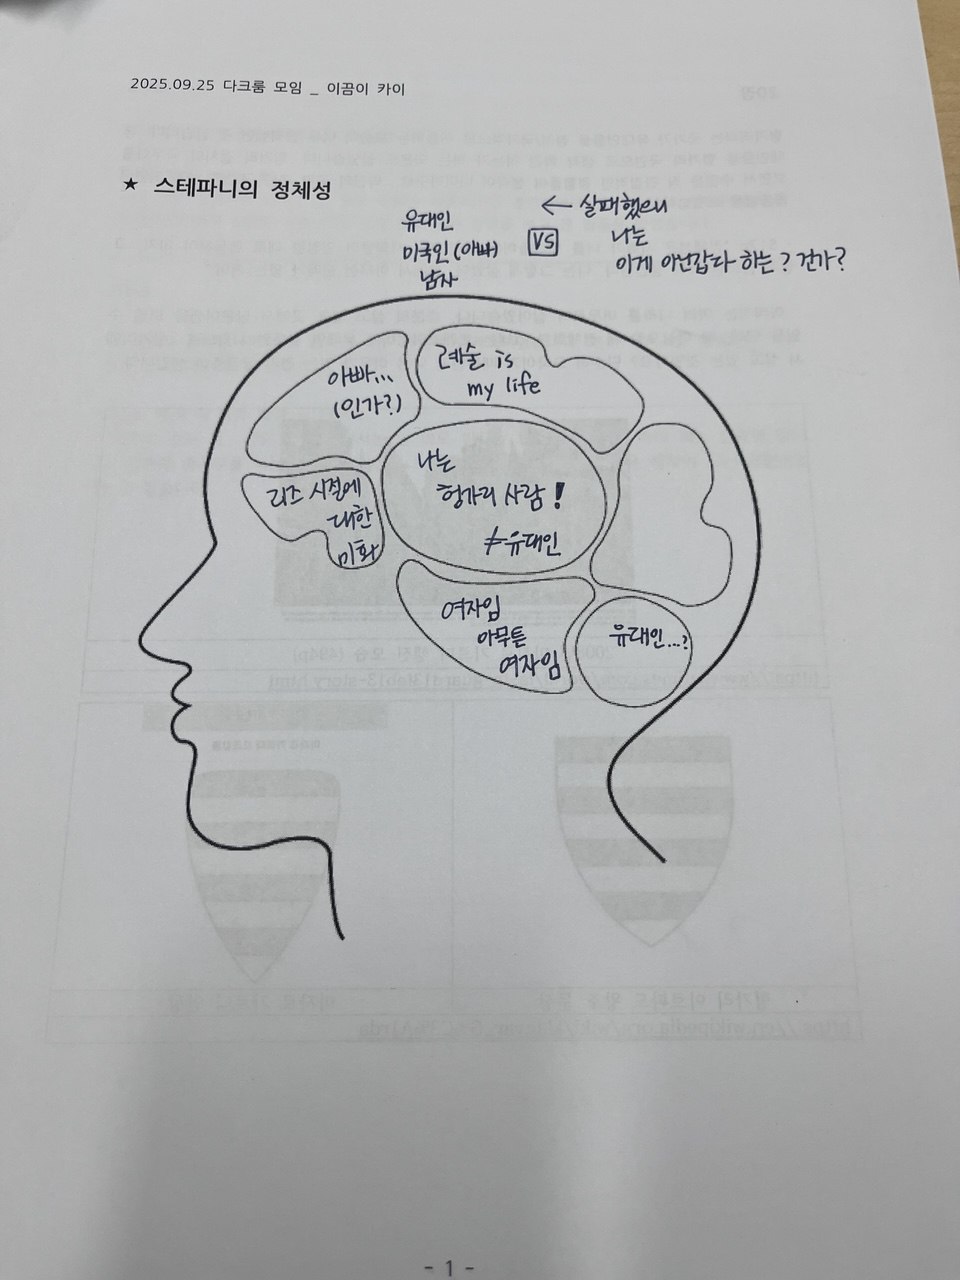 2025.09.25 다크룸 모임 _ 이끔이 카이
★ 스테파니의 정체성
유대인
미국인 (아빠)
남자
VS
← 살패했으니
나는
이게 아닌갑다 하는? 건가?
아빠...
(인가?)
예술 is
my life
리즈 시절에
대한
미화
나는
헝가리 사람!
≠유대인
여자임
아무튼
여자임
유대인...?
- 1 -